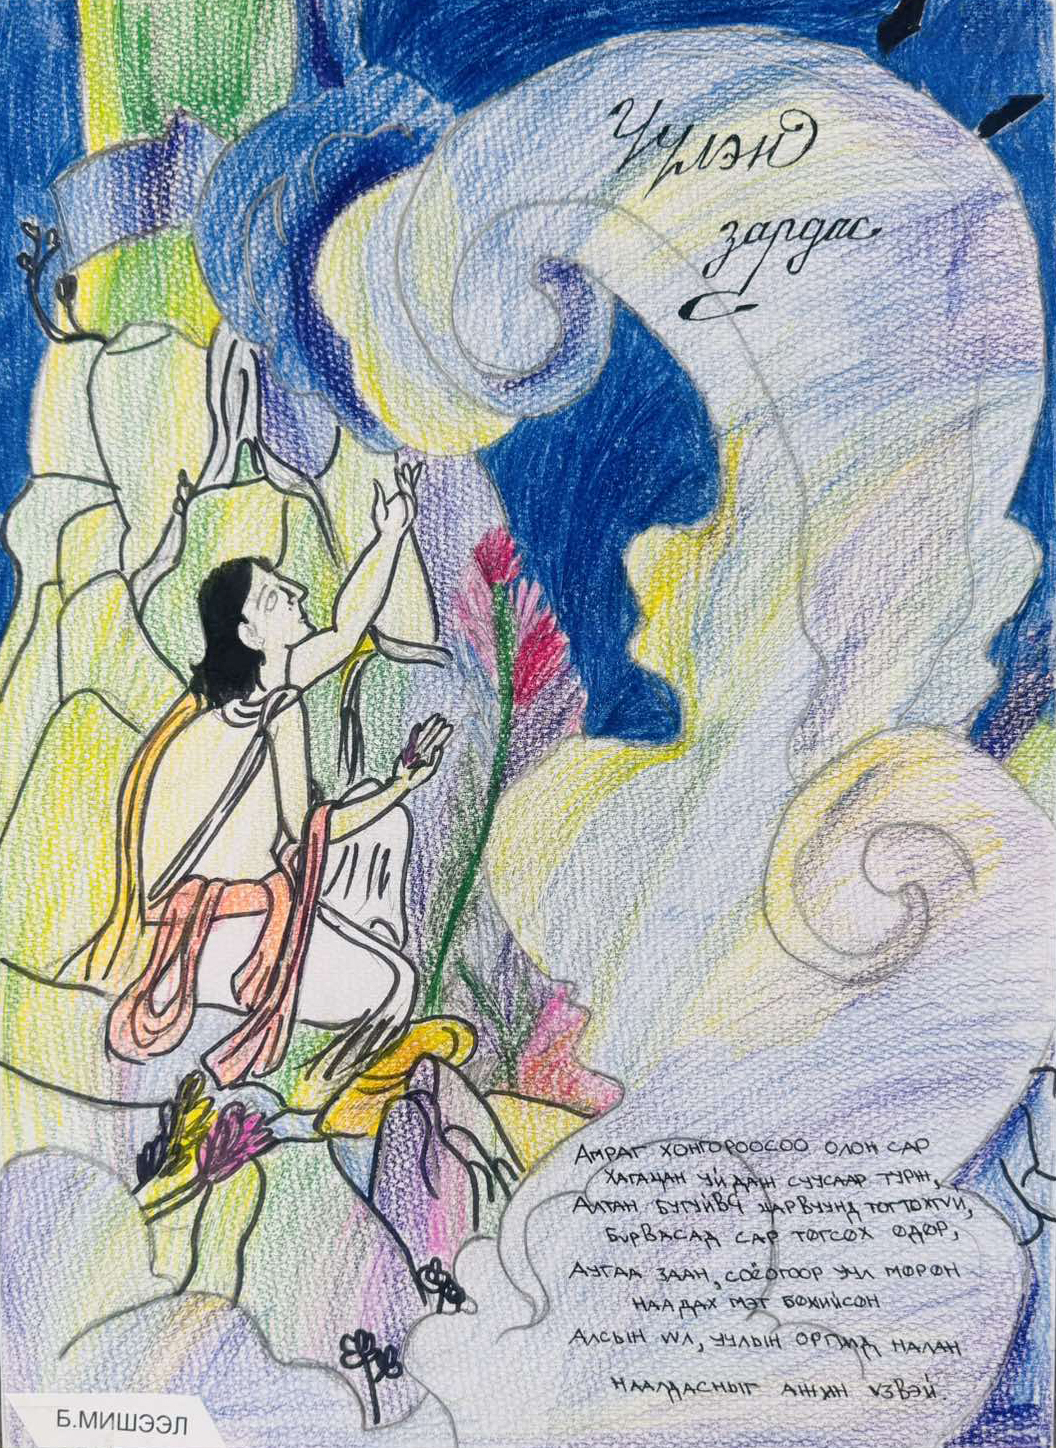 Үүлэн
зардас
Амраг хонгороосоо олон сар
хагацан уйдаж суусаар турж,
Алтан бугуйвч шарвуунд тогтохгүй,
Бурвасад сар төгсөх өдөр,
Аугаа заан, соёогоор уул мөрөн
наадах мэт бөхийсөн
Алсын үүл, уулын оргилд налан
наалдасныг ажин үзвэй.
Б.МИШЭЭЛ